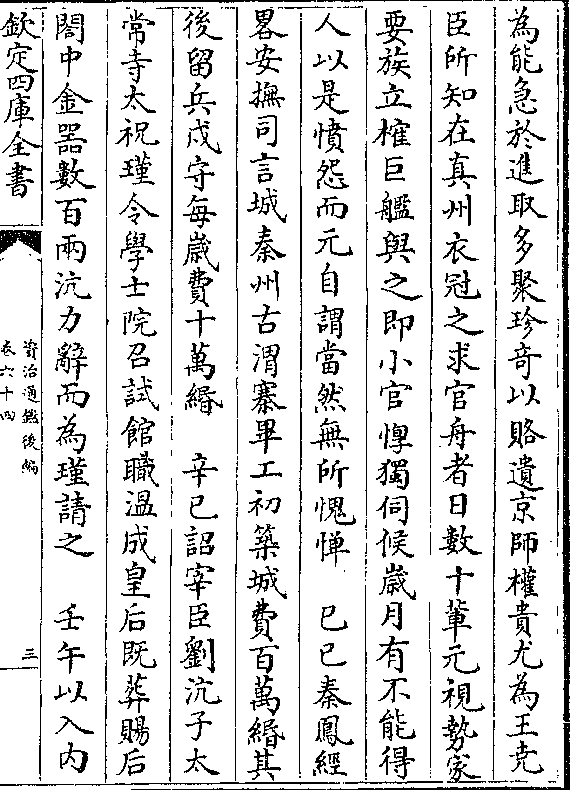 為能急於進取多聚珍奇以賂遺京師權貴尤為王堯
臣所知在真州衣冠之求官舟者日數十輩元視勢家
要族立榷巨艦與之即小官惸獨伺候歳月有不能得
人以是憤怨而元自謂當然無所愧憚　己巳秦鳳經
畧安撫司言城秦州古渭寨畢工初築城費百萬緡其
後留兵戍守每歳費十萬緡　辛巳詔宰臣劉沆子太
常寺太祝瑾令學士院召試館職溫成皇后既葬賜后
閤中金器數百兩沆力辭而為瑾請之　壬午以入内
欽定四庫全書
資治通鑑後編
卷六十四
三